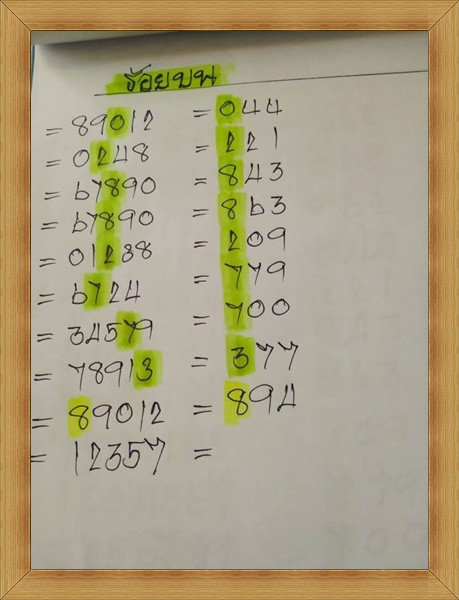 ร้อยบน
= 89012 = 044
= 0248 = 221
= 67890 = 843
= 67890 = 863
= 01238 = 209
= 6724 = 779
= 34579 = 700
= 78913 = 377
= 89012 = 894
= 12357 =